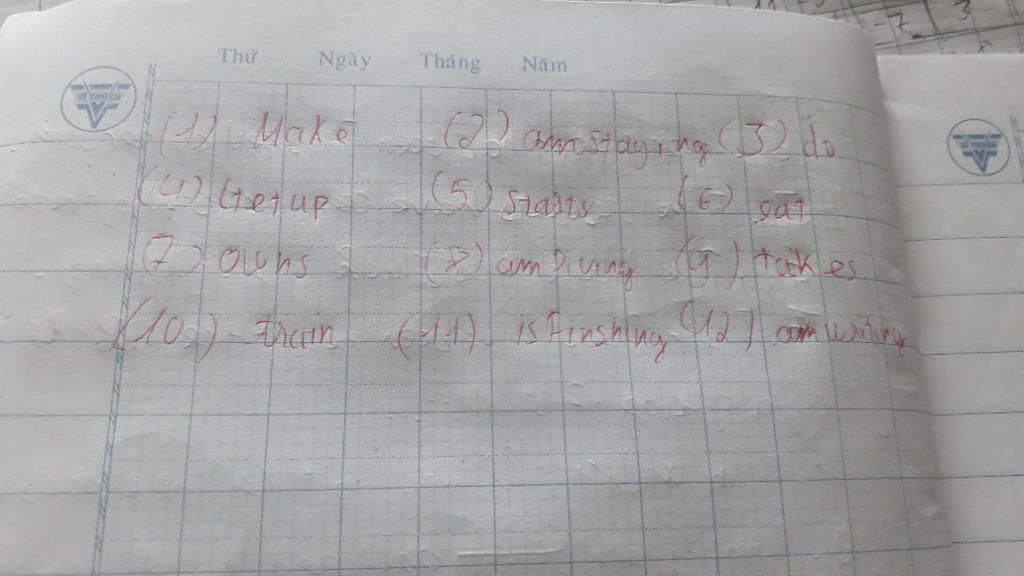 Thứ Ngày Tháng Năm
VĨ THUẬN
(1) Make (2) am staying (3) do
(4) Get up (5) starts (6) eat
(7) Owns (8) am living (9) takes
(10) train (11) is Finshing (12) am writing